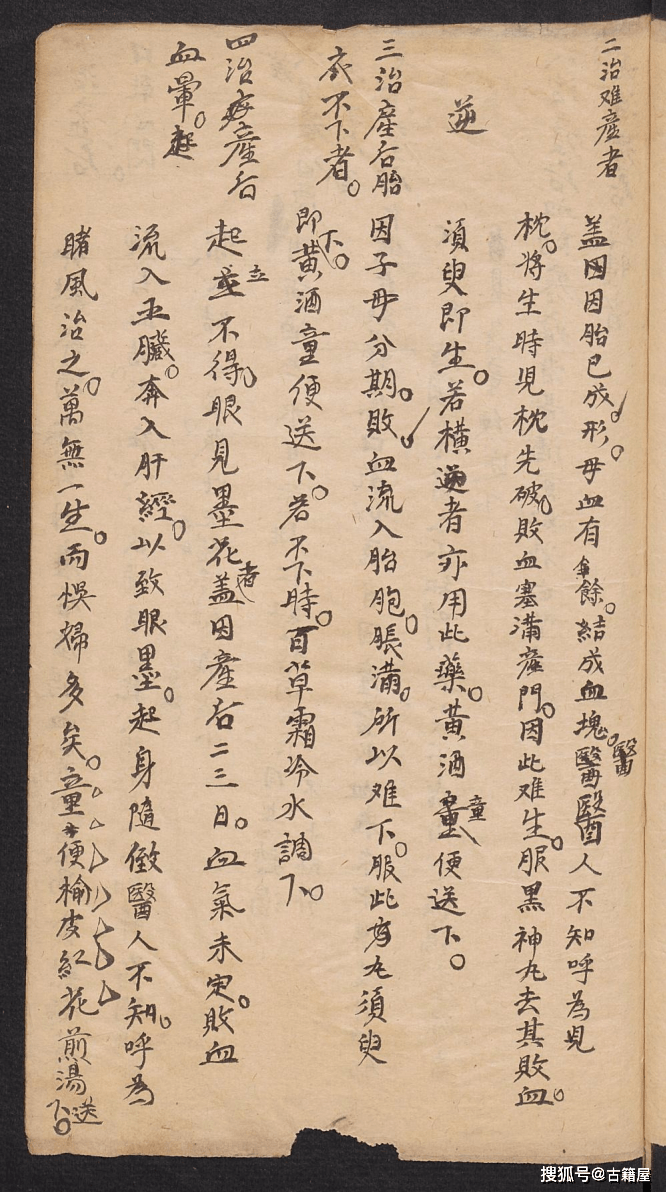 二治难產者
盖因因胎已成形。母血有餘。結成血塊。醫人不知呼為児
枕。将生時児枕先破。敗血塞满產門。因此难生。服黑神丸去其敗血。
逆
須臾即生。若横逆者亦用此藥。黄酒童便送下。
三治產后胎
衣不下者。
因子母分期。敗血流入胎胞。脹满。所以难下。服此丸須臾
即下。黄酒童便送下。若不下時。百草霜冷水調下。
四治產后
血暈。起
起立不得。眼見墨花者盖因產后二三日。血氣未定。敗血
流入五臟。奔入肝經。以致眼墨。起身隨倒醫人不知。呼為
賭風治之。萬無一生。而悮婦多矣。童便榆皮紅花煎湯送下。
搜狐号@古籍屋